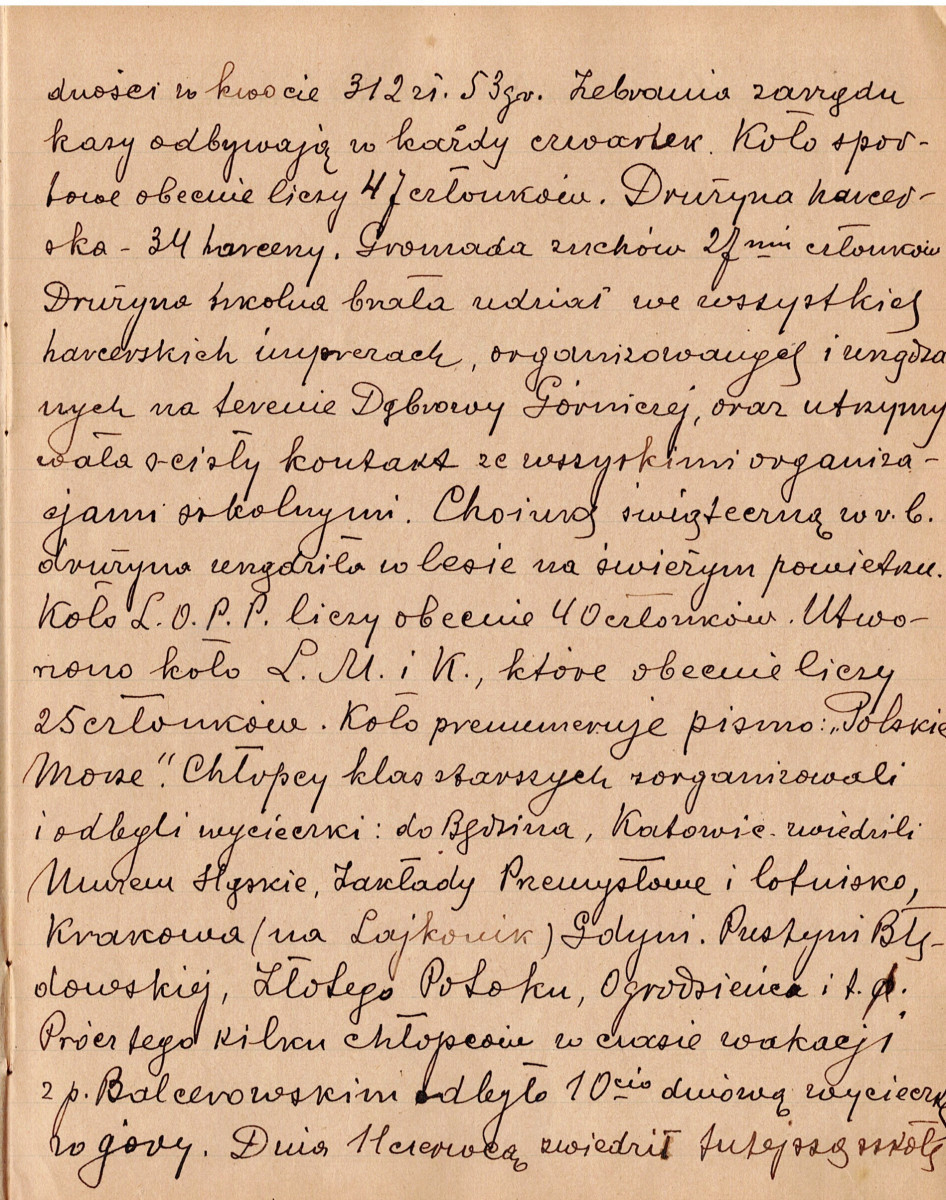 dności w kwocie 312 zł. 53 gr. Zebrania zarządu
kasy odbywają w każdy czwartek. Koło spor-
towe obecnie liczy 47 członków. Drużyna harcer-
ska - 34 harcerzy. Gromada zuchów 27miu członków
Drużyna szkolna brała udział we wszystkich
harcerskich imprezach, organizowanych i urządza
nych na terenie Dąbrowy Górniczej, oraz utrzymy
wała ścisły kontakt ze wszyskimi organiza-
cjami szkolnymi. Choinkę świąteczną w r. b.
drużyna urządziła w lesie na świeżym powietrzu.
Koło L. O. P. P. liczy obecnie 40 członków. Utwo-
rzono koło L. M. i K., które obecnie liczy
25 członków. Koło prenumeruje pismo: „Polskie
Morze". Chłopcy klas starszych zorganizowali
i odbyli wycieczki: do Będzina, Katowic - zwiedzili
Muzeum Śląskie, Zakłady Przemysłowe i lotnisko,
Krakowa (na Lajkonik) Gdyni. Pustyni Błę-
dowskiej, Złotego Potoku, Ogrodzieńca i t. d.
Prócz tego kilku chłopców w czasie wakacji
z p. Balcerowskim odbyło 10cio dniową wycieczkę
w góry. Dnia 11 czerwca zwiedził tutejszą szkołę